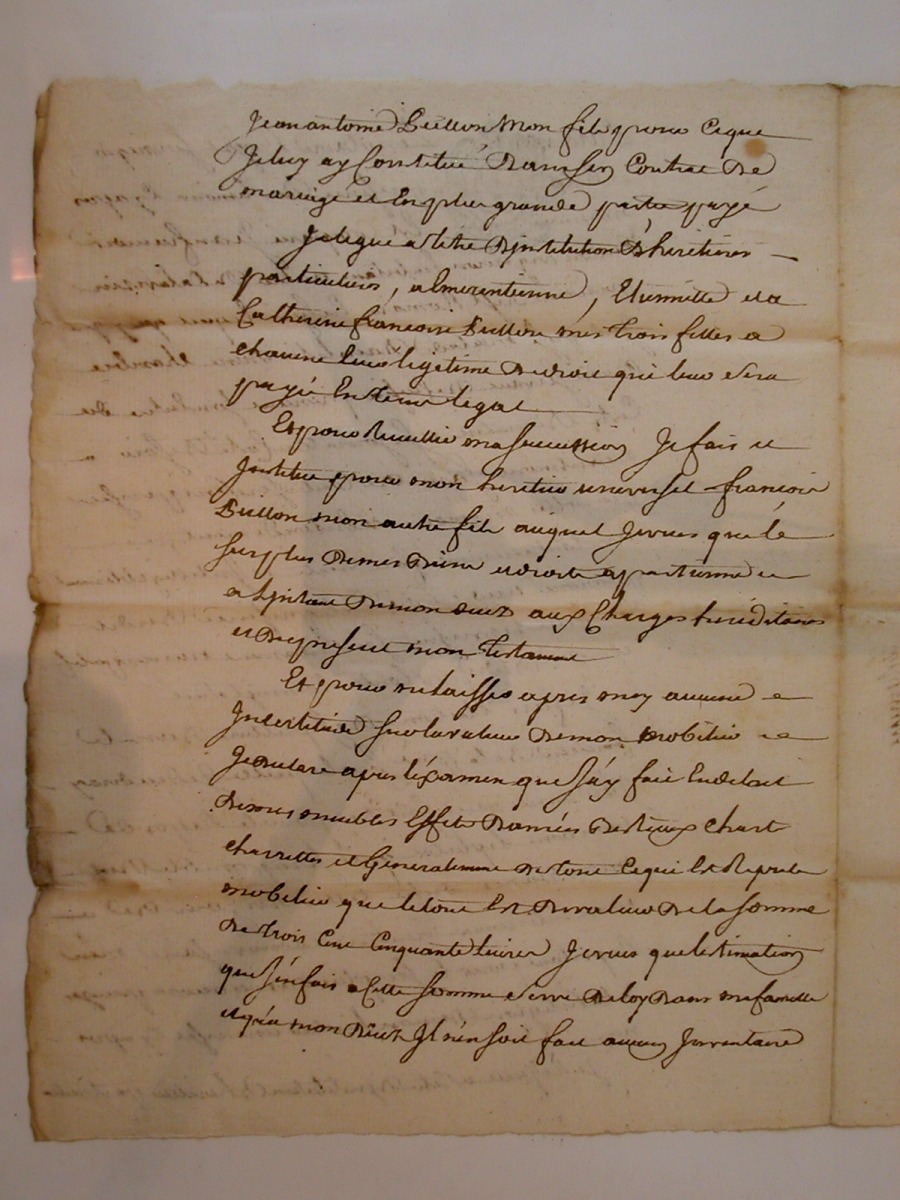 Jean antoine Buillon Mon fils pour Ceque
Jeluy ay Constitué Dans son Contrat De
mariage et En plus grande partie payé
Je legue a titre Dinstitution D'heritieres
particulieres, a Emerentienne, Etiennette et a
Catherine françoise Buillon mes trois filles a
chacune Leur legitime De droit qui leur Sera
payée En terme legal
Et pour Recueillir ma succession Je fais et
Institue pour mon heritier universel françois
Buillon mon autre fils auquel Je veus que le
surplus De mes Biens et droits appartienne et
a Linstant De mon deces aux Charges hereditaires
et Du present mon testament
Et pour ne laisser apres moy aucune
Incertitude Sur la valeur De mon mobilier
Je Declare apres l'éxamen que J'ay fait En detail
De mes meubles Effets Danrées Bestiaux Chars
charrettes et Generalement De tout Cequi Est Reputé
mobilier que le tout Est De valeur De la somme
De trois Cent Cinquante Livres Je veus que lestimation
que J'en fais a Cette Somme serve De loy Dans ma famille
et qu'a mon Décès Il n'en soit fait aucun Inventaire